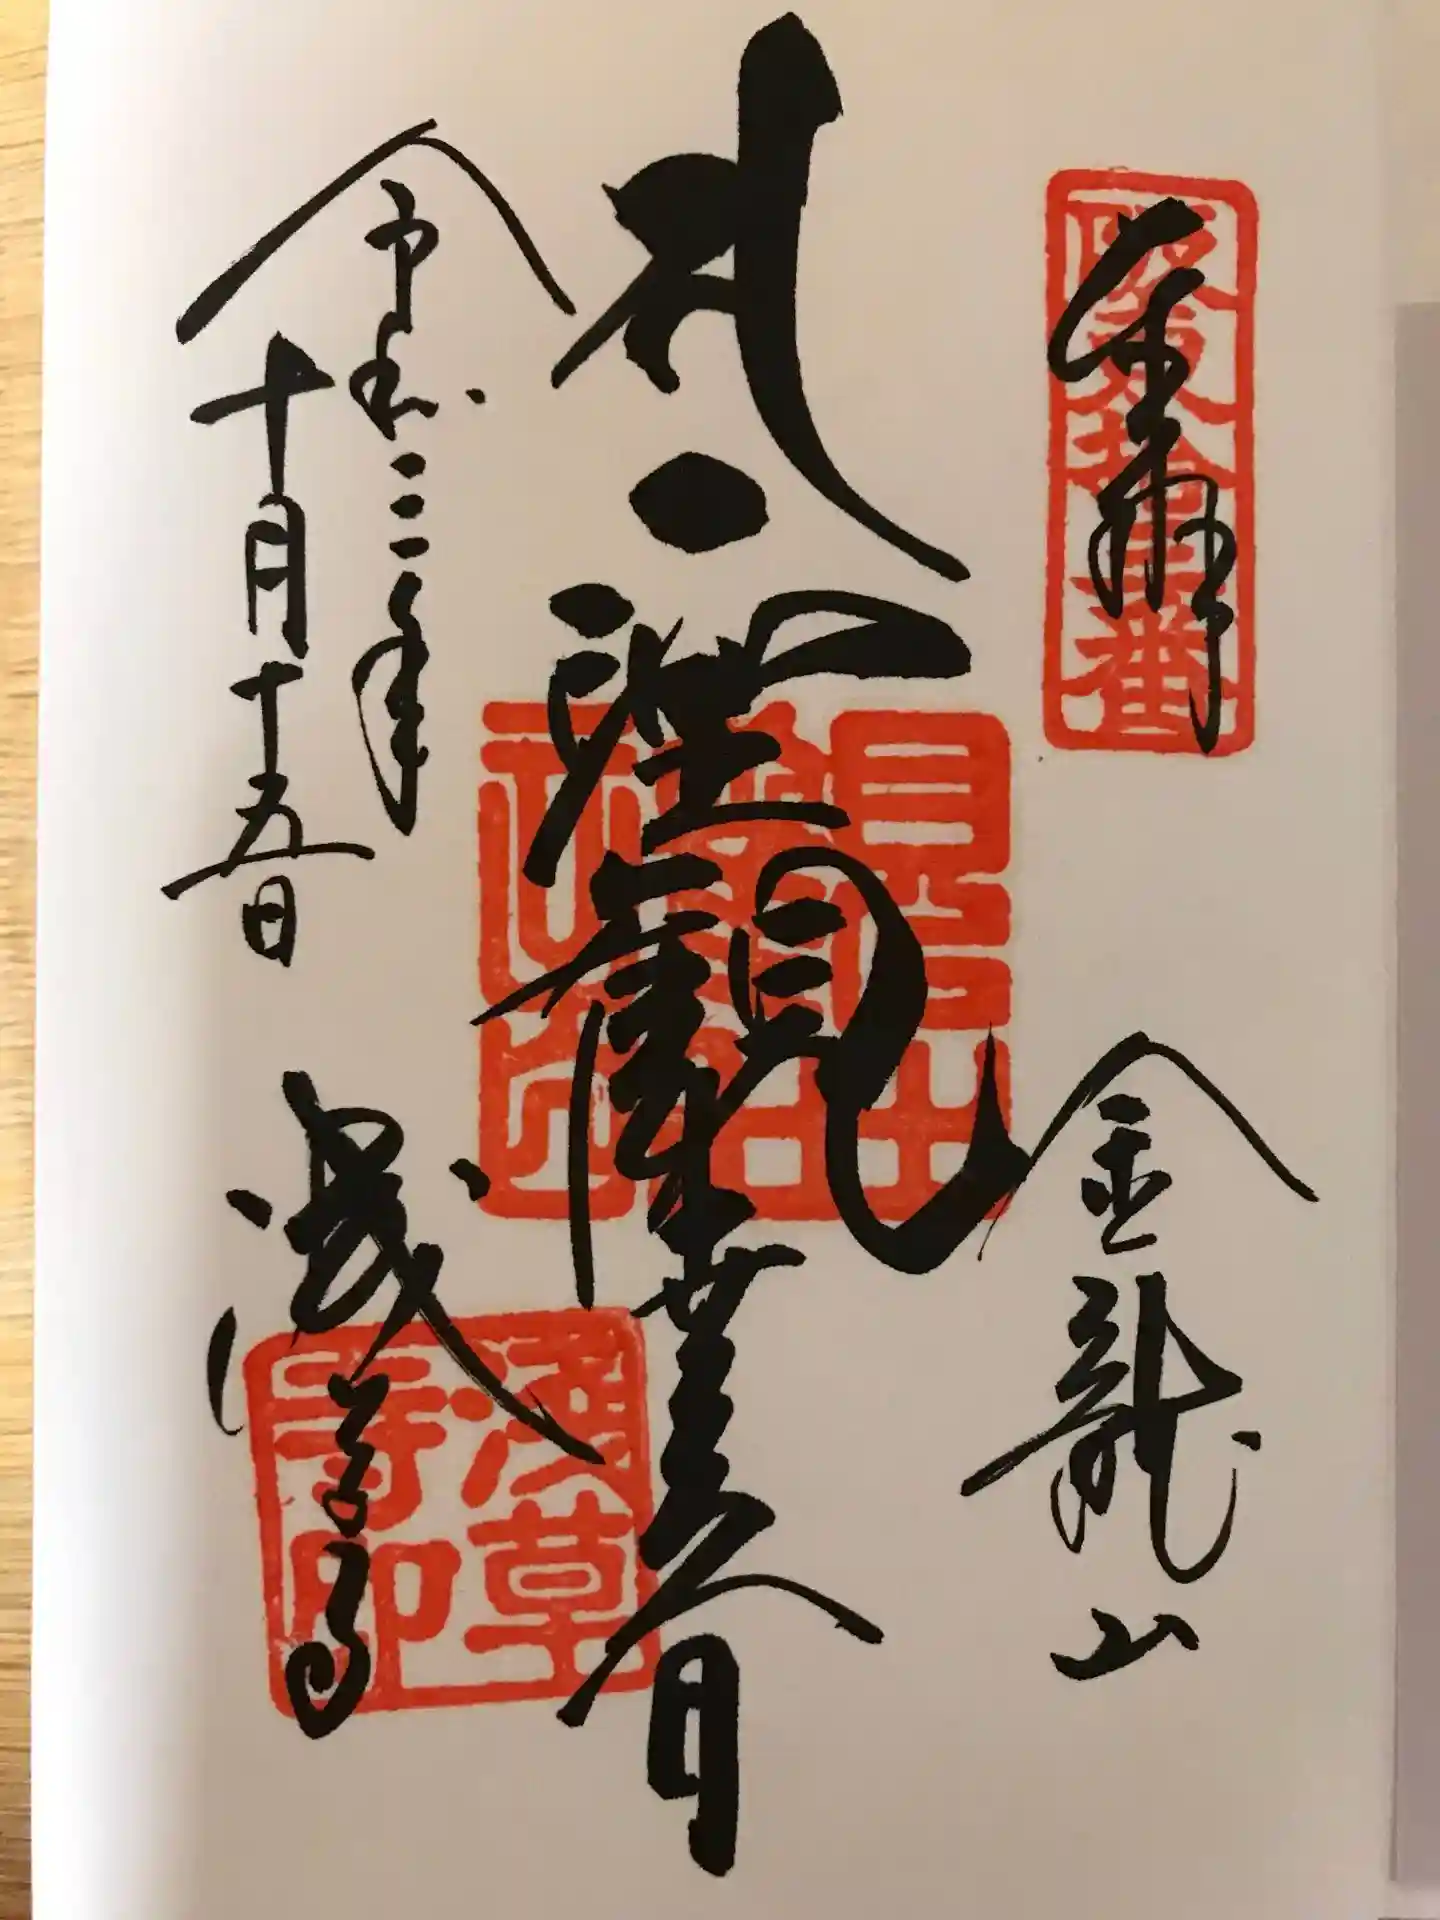 奉拝
坂東拾三番
金龍山
聖觀世音
令和二年
十月十五日
淺草寺
淺草寺印